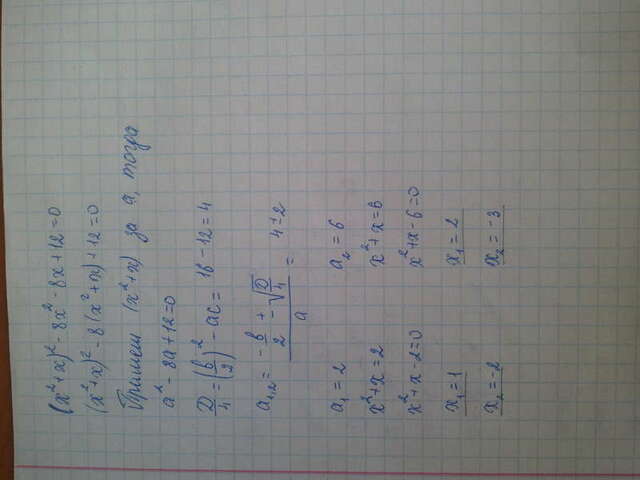 (x²+x)²-8x²-8x+12=0
(x²+x)²-8(x²+x)+12=0
Примем (x²+x) за a, тогда
a²-8a+12=0
D/4=(b/2)²-ac=16-12=4
a₁,₂=(-b/2±√(D/4))/a=4±2
a₁=2 a₂=6
x²+x=2 x²+x=6
x²+x-2=0 x²+x-6=0
x₁=1 x₁=2
x₂=-2 x₂=-3